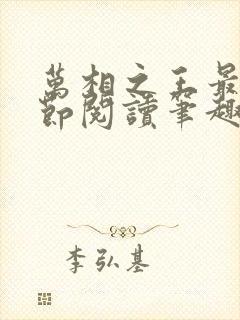 萬相之王最
節閱讀筆趣
李弘基